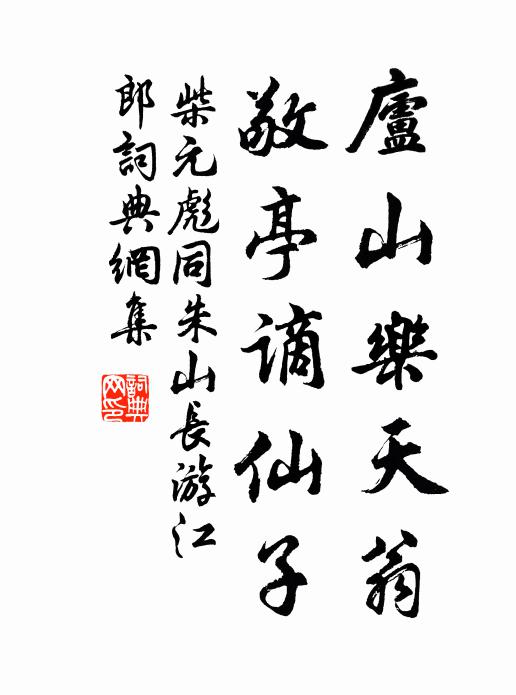 廬山樂天翁
敬亭謫仙子
柴元彪同朱山長游江
郎詞典網集
詞典網印